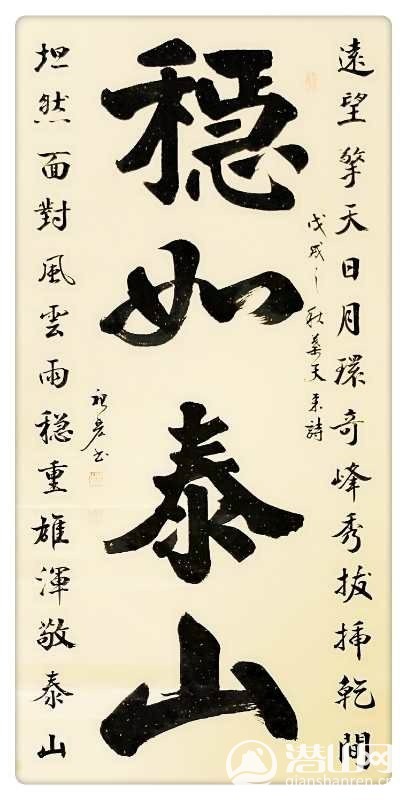 遠望擎天日月環奇峰秀拔插乾間
戊戌之秋葉天來詩
穩如泰山
坦然面對風雲雨穩重雄渾敬泰山
潜山网
qianshanren.cn